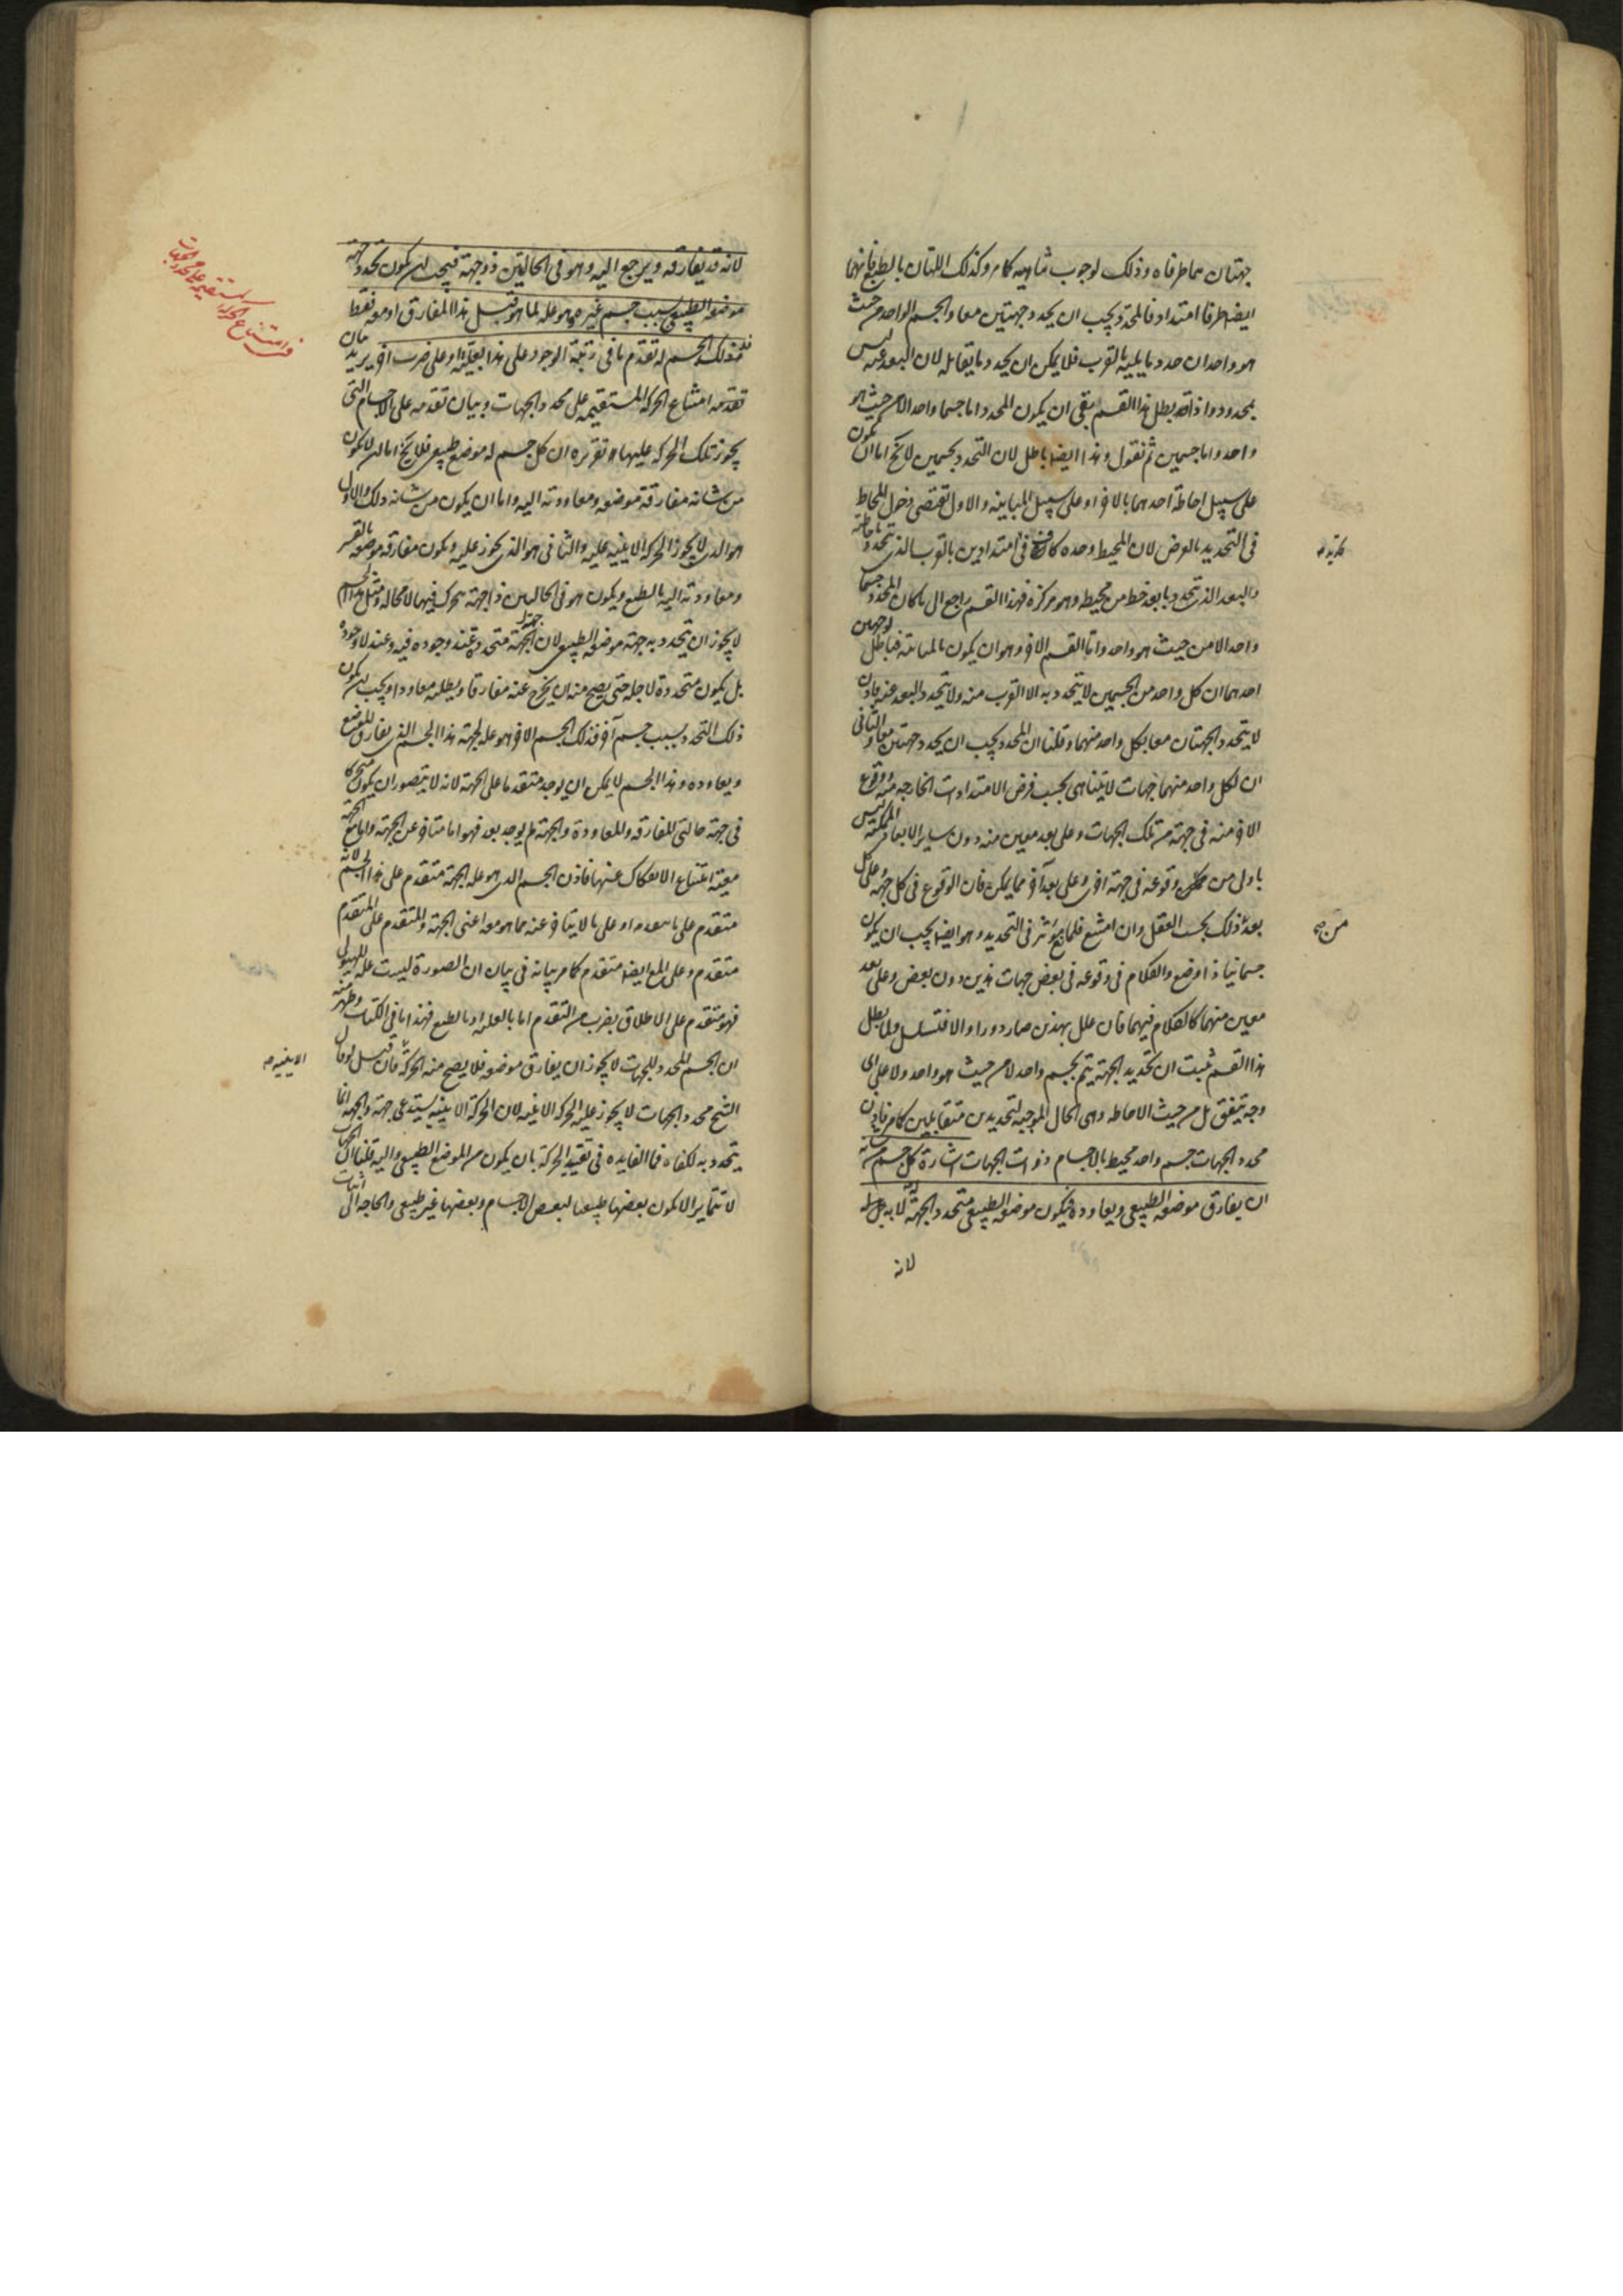 جهتان هما طرفاه وذلك لوجوب تناهيه كما مر وكذلك اللتان بالطبع فانهما
ايضا طرفا امتداد فالمحدد يجب ان يحدد جهتين معا والجسم الواحد من حيث
هو واحد ان حدد ما يليه بالقرب فلا يمكن ان يحدد ما يقابله لان البعد عنه ليس
بمحدود واذا قد بطل هذا القسم بقى ان يكون المحدد اما جسما واحدا لا من حيث هو
واحد واما جسمين ثم نقول وهذا ايضا باطل لان التحدد بجسمين لا يخ اما ان يكون
على سبيل احاطة احدهما بالاخر او على سبيل المباينة والاول تقتضى دخول المحاط
فى التحديد بالعرض لان المحيط وحده كاف فى امتدادين بالقرب الذى يتحدد باحاطته
والبعد الذى يتحدد بابعد خط من محيطه وهو مركزه فهذا القسم راجع الى ما كان المحدد جسما
واحدا لا من حيث هو واحد واما القسم الاخر وهو ان يكون بالمباينة فباطل لوجهين
احدهما ان كل واحد من الجسمين لا يتحدد به الا القرب منه ولا يتحدد البعد عنه فاذن
لا يتحدد الجهتان معا بكل واحد منهما وقلنا ان المحدد يجب ان يحدد جهتين معا والثانى
ان لكل واحد منهما جهات لا يتناهى بحسب فرض الامتدادات الخارجة منه ووقوع
الاخر منه فى جهة من تلك الجهات وعلى بعد معين منه دون ساير الابعاد الممكنة ليس
باولى من وقوعه فى جهة اخرى وعلى بعد آخر مما يمكن فان الوقوع فى كل جهة وعلى كل
بعد من ذلك بحسب العقل وان امتنع فلمانع مؤثر فى التحديد وهو ايضا يجب ان يكون
جسمانيا ذا وضع والكلام فى وقوعه فى بعض جهات هذين دون بعض وعلى بعد
معين منهما كالكلام فيهما فان علل بهذين صار دورا والا فتسلسل ولما بطل
هذا القسم ثبت ان تحديد الجهة يتم بجسم واحد لا من حيث هو واحد ولا على اى
وجه يتفق بل من حيث الاحاطة وهى الحال الموجبة لتحديدين متقابلين كما مر فاذن
محدد الجهات جسم واحد محيط بالاجسام ذوات الجهات اشارة كل جسم من شانه
ان يفارق موضعه الطبيعى ويعاوده يكون موضعه الطبيعى متحدد الجهة له لا به
لانه
لانه قد يفارقه ويرجع اليه وهو فى الحالتين ذو جهة فيجب ان يكون تحدد جهة
موضعه الطبيعى بسبب جسم غيره وهو علة لما هو قبل هذا المفارق او معه فقط
فذلك الجسم له تقدم ما فى رتبة الوجود على هذا بعلية او على ضرب اخر يريد بيان
تقدمه امتناع الحركة المستقيمة على محدد الجهات وبيان تقدمه على الاجسام التى
يجوز تلك الحركة عليها وتقريره ان كل جسم له موضع طبيعى فلا يخ اما ان لا يكون
من شانه مفارقة موضعه ومعاودته اليه واما ان يكون من شانه ذلك والاول
هو الذى لا يجوز الحركة الاينية عليه والثانى هو الذى يجوز عليه ويكون مفارقة موضعه بالقسر
ومعاودته اليه بالطبع ويكون هو فى الحالين ذا جهة يتحرك فيها لا محالة ومثل هذا الجسم
لا يجوز ان يتحدد به جهة موضعه الطبيعى لان الجهة متحددة عند وجوده فيه وعند لا وجوده
بل يكون متحددة لاجله حتى يصح منه ان يخرج عنه مفارقا ويطلبه معاودا ويجب ان يكون
ذلك التحدد بسبب جسم آخر فذلك الجسم الاخر هو علة لجهة هذا الجسم الذى يفارق الموضع
ويعاوده وهذا الجسم لا يمكن ان يوجد متقدما على الجهة لانه لا يتصور ان يكون متحركا
فى جهة حالتى المفارقة والمعاودة والجهة لم يوجد بعد فهو اما متاخر عن الجهة واما مع الجهة
معية امتناع الانفكاك عنها فاذن الجسم الذى هو علة الجهة متقدم على هذا الجسم لانه
متقدم على ما يتقدم او على ما لا يتاخر عنه مما هو معه اعنى الجهة والمتقدم على المتقدم
متقدم وعلى المع ايضا متقدم كما مر بيانه فى بيان ان الصورة ليست علة للهيولى
فهو متقدم على الاطلاق بضرب من التقدم اما بالعلية او بالطبع فهذا ما فى الكتاب وظهر منه
ان الجسم المحدد للجهات لا يجوز ان يفارق موضعه فلا يصح منه الحركة فان قيل لو قال
الشيخ محدد الجهات لا يجوز عليه الحركة الاينية لان الحركة الاينية يستدعى جهة والجهة انما
يتحدد به لكفاه فما الفايدة فى تقييد الحركة بان يكون من الموضع الطبيعى واليه قلنا ان الجهات
لا تتمايز الا بكون بعضها طبيعيا لبعض الاجسام وبعضها غير طبيعى والحاجة الى اثبات
فى امتناع الحركة المستقيمة على محدد الجهات
الاينية صح